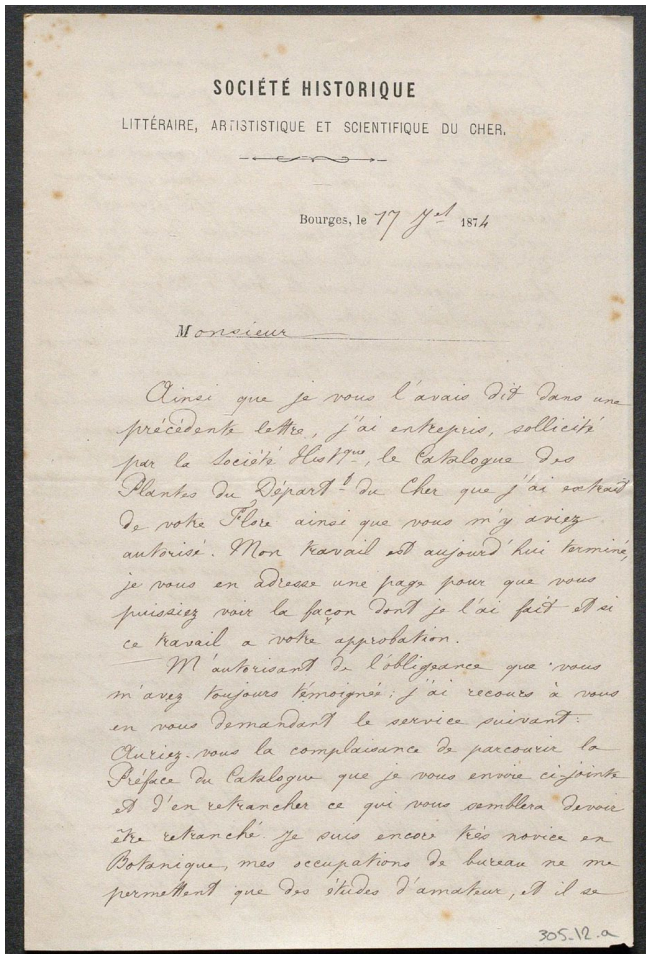 SOCIÉTÉ HISTORIQUE
LITTÉRAIRE, ARTISTISTIQUE ET SCIENTIFIQUE DU CHER,
Bourges, le 17 1874
Monsieur
Ainsi que je vous l'avais dit dans une
précédente lettre, j'ai entrepris, sollicité
par la Société Histque, le Catalogue des
Plantes du Départt du Cher que j'ai extrait
de votre Flore ainsi que vous m'y aviez
autorisé. Mon travail est aujourd'hui terminé,
je vous en adresse une page pour que vous
puissiez voir la façon dont je l'ai fait et si
ce travail a votre approbation.
M'autorisant de l'obligeance que vous
m'avez toujours témoignée; j'ai recours à vous
en vous demandant le service suivant:
Auriez-vous la complaisance de parcourir la
Préface du Catalogue que je vous envoie ci-jointe
et d'en retrancher ce qui vous semblera devoir
être retranché. Je suis encore très novice en
Botanique, mes occupations de bureau ne me
permettent que des études d'amateur, et il se
305-12.a